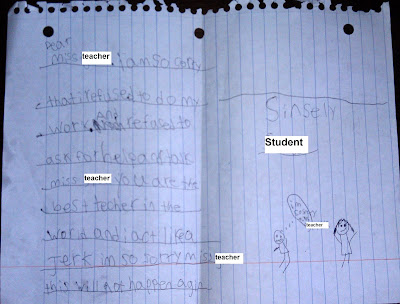 Dear
miss teacher. i am so sorry
that i refused to do my
work. And refused to
ask for help
miss teacher you are the
best techer in the
world and i act like a
Jerk im so sorry miss teacher
this will not happen agin
Sinselly
Student
im
sorry
teacher